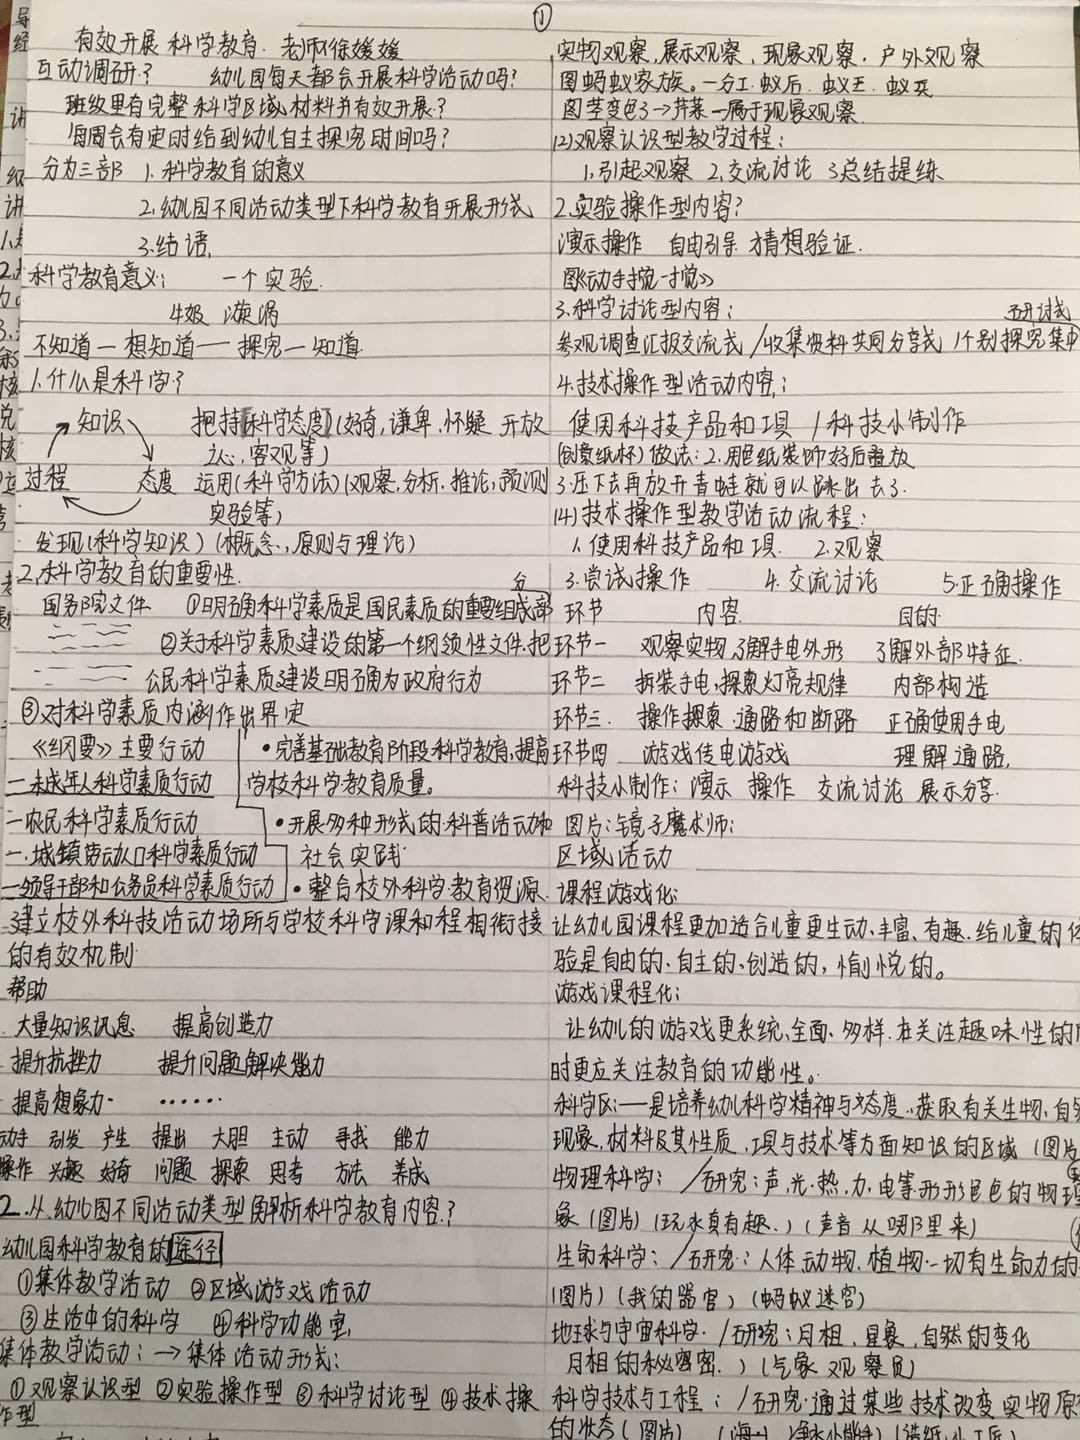 ①
有效开展科学教育. 老师:徐媛媛
互动调研? 幼儿园每天都会开展科学活动吗?
班级里有完整科学区域,材料并有效开展?
每周会有定时给到幼儿自主探究时间吗?
分为三部 1.科学教育的意义
2.幼儿园不同活动类型下科学教育开展形式
3.结语,
科学教育意义: 一个实验.
4姐 漩涡
不知道—想知道—探究—知道
1.什么是科学?
知识 把持(科学态度)(好奇,谦卑.怀疑 开放
心,客观等)
过程 态度 运用(科学方法)(观察,分析.推论,预测
实验等)
发现(科学知识)(概念.,原则与理论)
2.科学教育的重要性.
国务院文件 ①明确科学素质是国民素质的重要组成部分
②关于科学素质建设的第一个纲领性文件.把
公民科学素质建设明确为政府行为
③对科学素质内涵作出界定
《纲要》主要行动 •完善基础教育阶段科学教育,提高
一未成年人科学素质行动 学校科学教育质量。
一农民科学素质行动 •开展多种形式的科普活动和
一.城镇劳动人口科学素质行动 社会实践
一领导干部和公务员科学素质行动 •整合校外科学教育资源
建立校外科技活动场所与学校科学课和程相衔接
的有效机制
帮助
大量知识讯息 提高创造力
提升抗挫力 提升问题解决能力
提高想象力 ······
动手 引发 产生 提出 大胆 主动 寻找 能力
操作 兴趣 好奇 问题 探索 思考 方法 养成
2.从幼儿园不同活动类型解析科学教育内容?
幼儿园科学教育的途径
①集体教学活动 ②区域游戏活动
③生活中的科学 ④科学功能室,
集体教学活动:→集体活动形式:
①观察认识型 ②实验操作型 ③科学讨论型 ④技术操
作型
实物观察,展示观察,现象观察.户外观察
图蚂蚁家族。一分工.蚁后.蚁王.蚁兵
图茎变色了→芹菜—属于现象观察
(2)观察认识型教学过程:
1.引起观察 2.交流讨论 3总结提练
2.实验操作型内容?
演示操作 自由引导 猜想验证.
图《动手搅一搅》
3.科学讨论型内容:
参观调查汇报交流式/收集资料共同分享式/个别探究集中研讨式
4.技术操作型活动内容,:
使用科技产品和工具 /科技小制作
(创意纸杯)做法:2.用色纸装饰好后叠放
3.压下去再放开青蛙就可以跳出去了.
(4)技术操作型教学活动流程:
1.使用科技产品和工具. 2.观察
3.尝试操作 4.交流讨论 5.正确操作
环节 内容. 目的
环节一 观察实物了解手电外形 了解外部特征.
环节二 拆装手电,探索灯亮规律 内部构造
环节三. 操作探索.通路和断路 正确使用手电
环节四 游戏传电游戏 理解通路,
科技小制作:演示 操作 交流讨论 展示分享.
图片:镜子魔术师:
区域活动
课程游戏化:
让幼儿园课程更加适合儿童更生动.丰富、有趣.给儿童的体
验是自由的、自主的、创造的,愉悦的。
游戏课程化:
让幼儿的游戏更系统,全面、多样.在关注趣味性的同
时更应关注教育的功能性。
科学区:——是培养幼儿科学精神与态度.获取有关生物,自然
现象,材料及其性质,工具与技术等方面知识的区域(图片
物理科学: /研究:声,光.热.力.电等形形色色的物理
象(图片)(玩水真有趣.)(声音从哪里来)
生命科学:/研究:人体,动物.植物.一切有生命力的
(图片)(我的器官)(蚂蚁迷宫)
地球与宇宙科学./研究:月相,星象,自然的变化
月相的秘密.)(气象观察员)
科学技术与工程:/研究.通过某些技术改变实物原
的状态(图片) 净水小能手)(造纸小工匠)